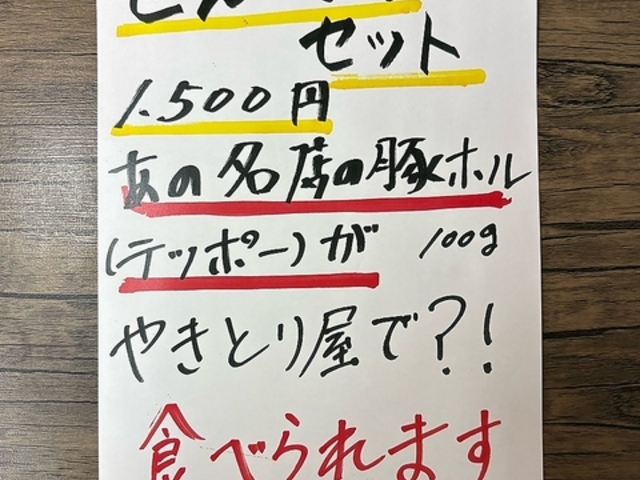 セット
1.500円
あの名店の豚ホル
(テッポー)が 100g
やきとり屋で?!
食べられます